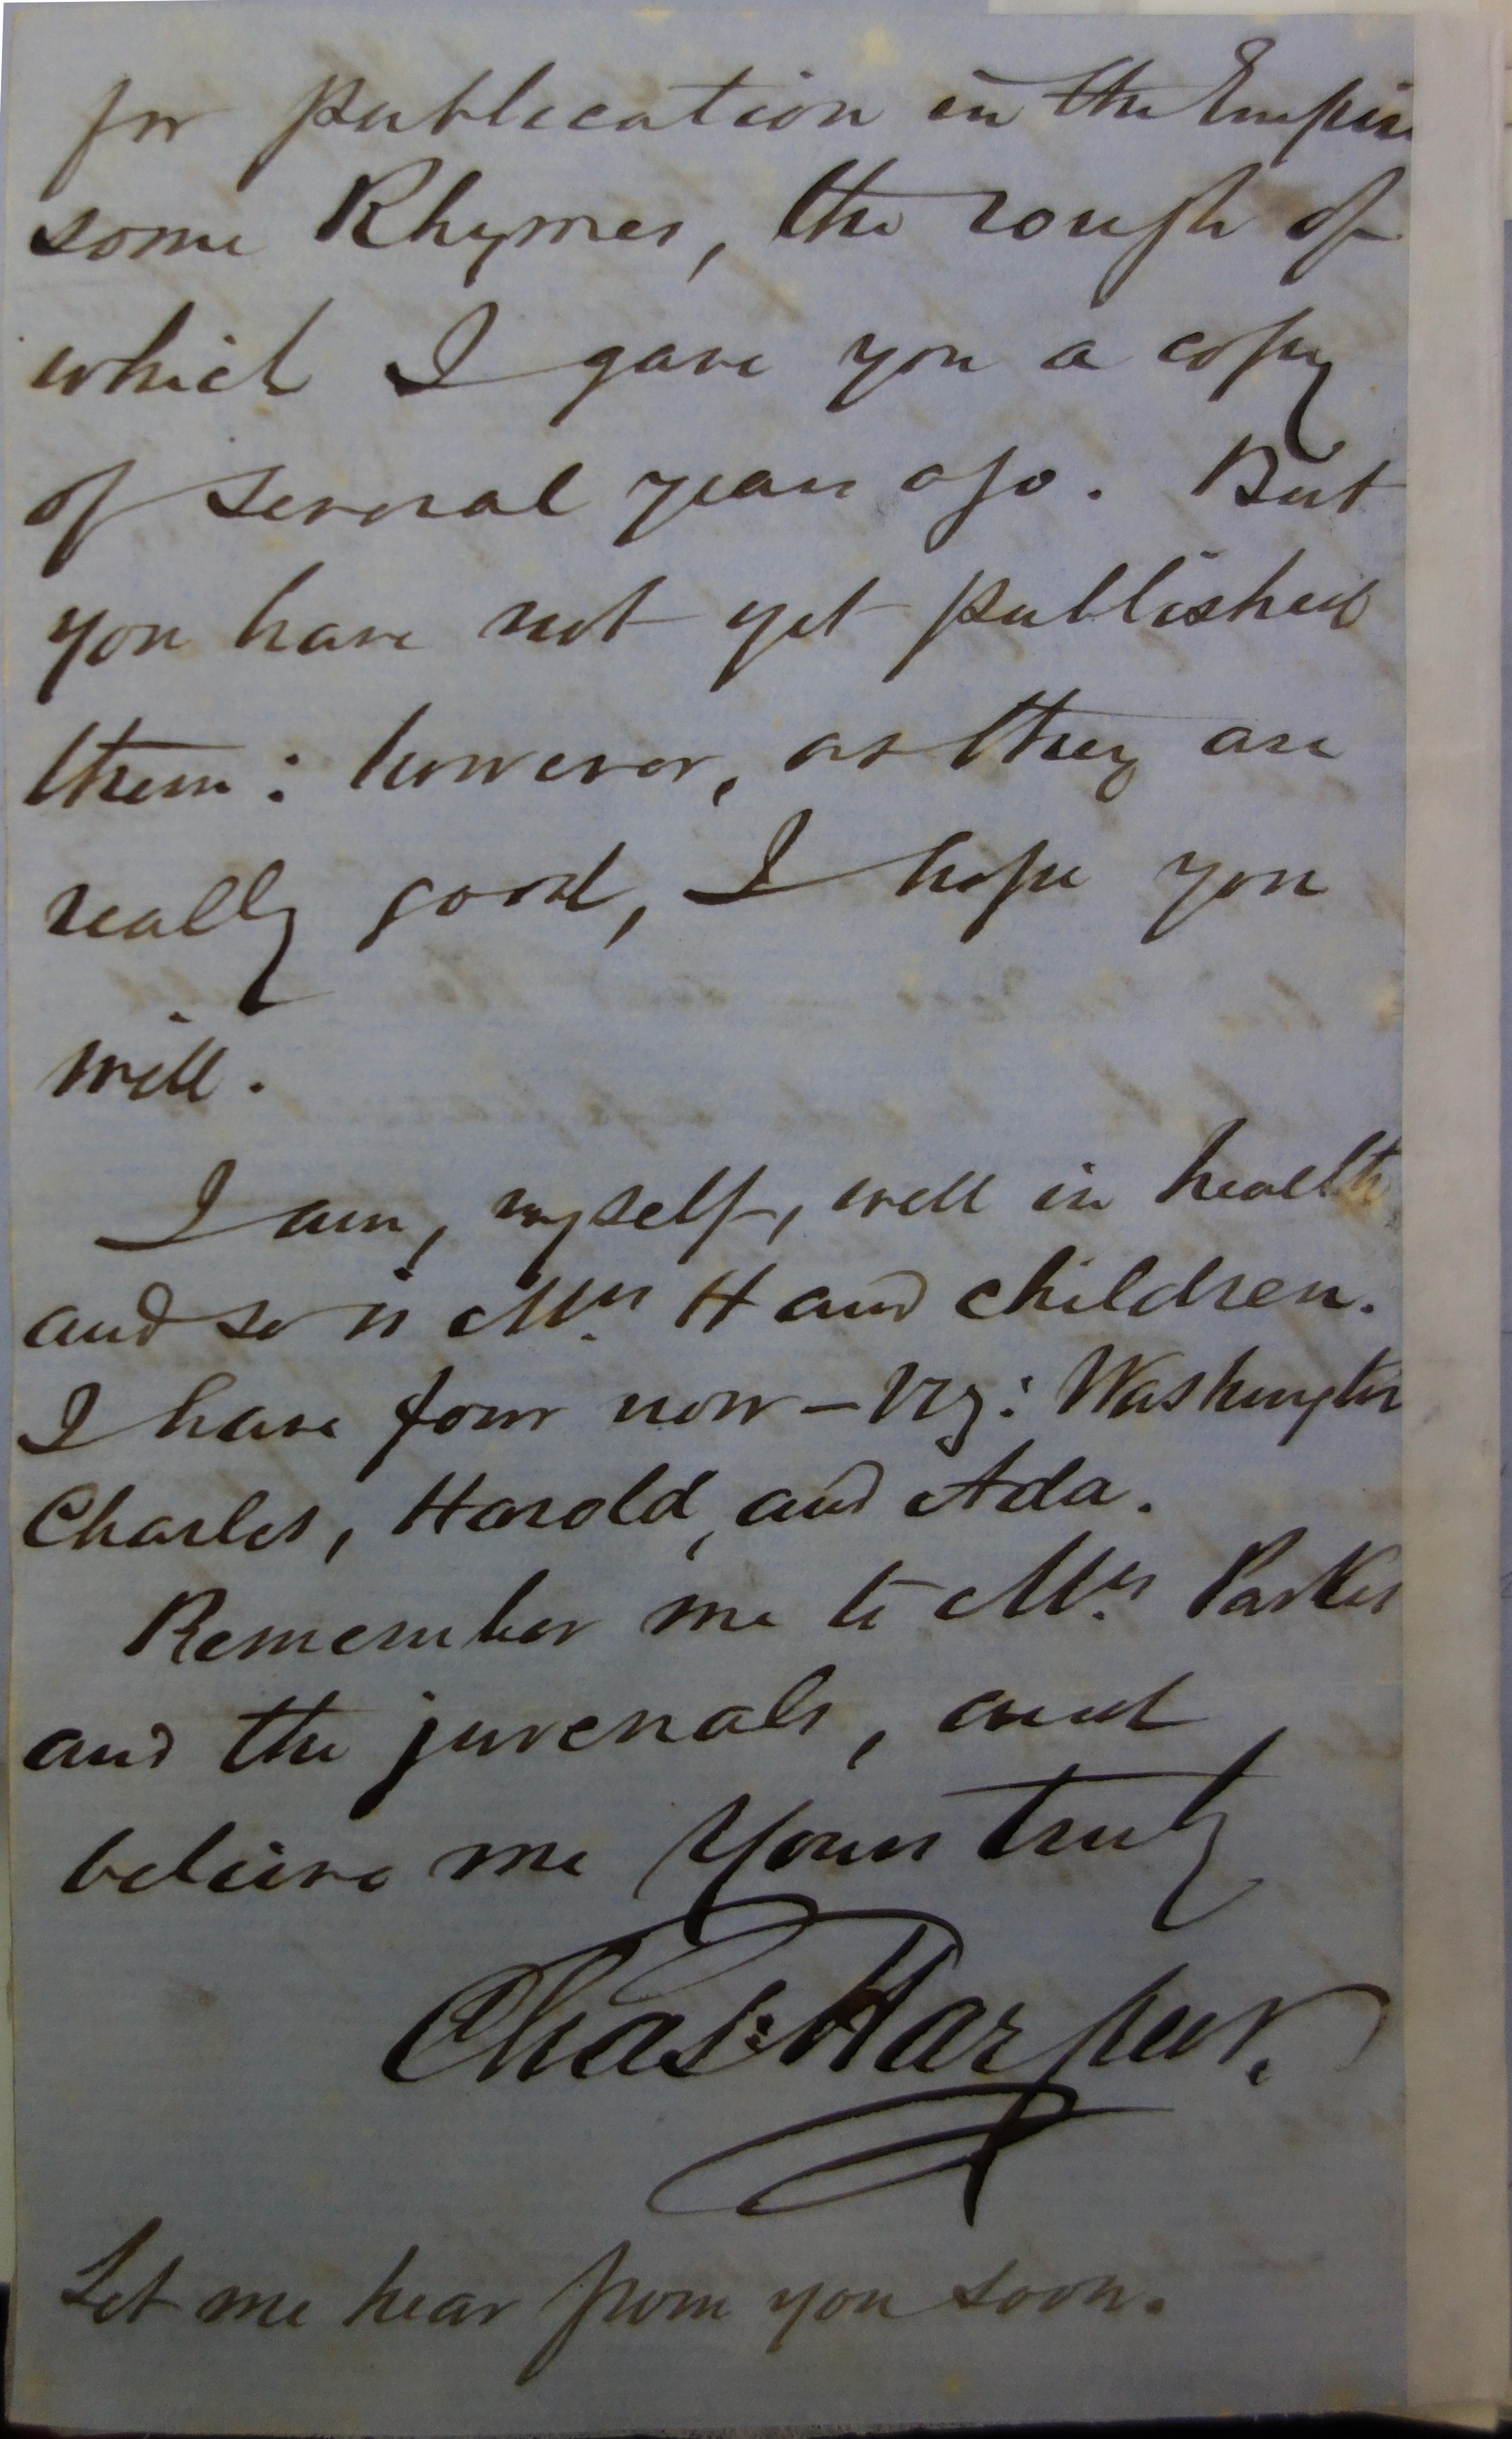 for publication in the Empire
some Rhymes, the rough of
which I gave you a copy
of several years ago. But
you have not yet published
them: however, as they are
really good, I hope you
will.
I am, myself, well in health
and so is Mrs. H and children.
I have four now — viz: Washington
Charles, Harold, and Ada.
Remember me to Mrs. Parkes
and the juvenals, and
believe me Yours truly
Chas: Harpur.
Let me hear from you soon.